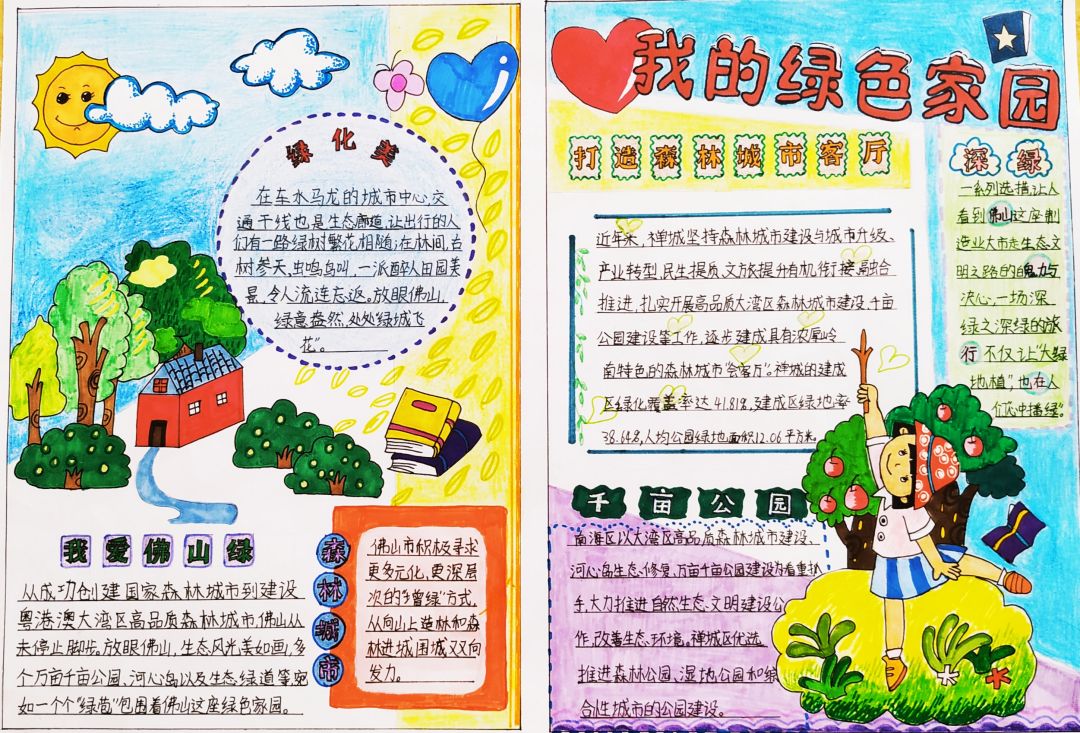 绿化美
在车水马龙的城市中心,交
通干线也是生态廊道,让出行的人
们有一路绿树繁花相随;在林间,古
树参天,虫鸣鸟叫,一派醉人田园美
景,令人流连忘返。放眼佛山,
绿意盎然,处处绿城飞
花”。
我爱佛山绿
从成功创建国家森林城市到建设
粤港澳大湾区高品质森林城市,佛山从
未停止脚步,放眼佛山,生态风光美如画,多
个万亩千亩公园、河心岛以及生态绿道等,宛
如一个个“绿芭”包围着佛山这座绿色家园。
森林城市
佛山市积极寻求
更多元化,更深层
次的“增绿”方式,
从向山上造林和森
林进城围城双向
发力。
我的绿色家园
打造森林城市客厅
近年来,禅城坚持森林城市建设与城市升级、
产业转型,民生提质、文旅提升有机衔接,融合
推进,扎实开展高品质大湾区森林城市建设,千亩
公园建设等工作,逐步建成具有浓厚岭
南特色的森林城市“会客厅”。禅城的建成
区绿化覆盖率达41.81%,建成区绿地率
38.64%,人均公园绿地面积12.06平方米。
深绿
一系列选措让人
看到佛山这座制
造业大市走生态文
明之路的魄力与
决心,一场深
绿之深绿的旅
行不仅让“大绿
地植”也在人
们心中播绿”。
千亩公园
南海区以大湾区高品质森林城市建设、
河心岛生态修复、万亩千亩公园建设为着重抓
手,大力推进自然生态文明建设公
作,改善生态环境。禅城区优选
推进森林公园、湿地公园和综
合性城市的公园建设。